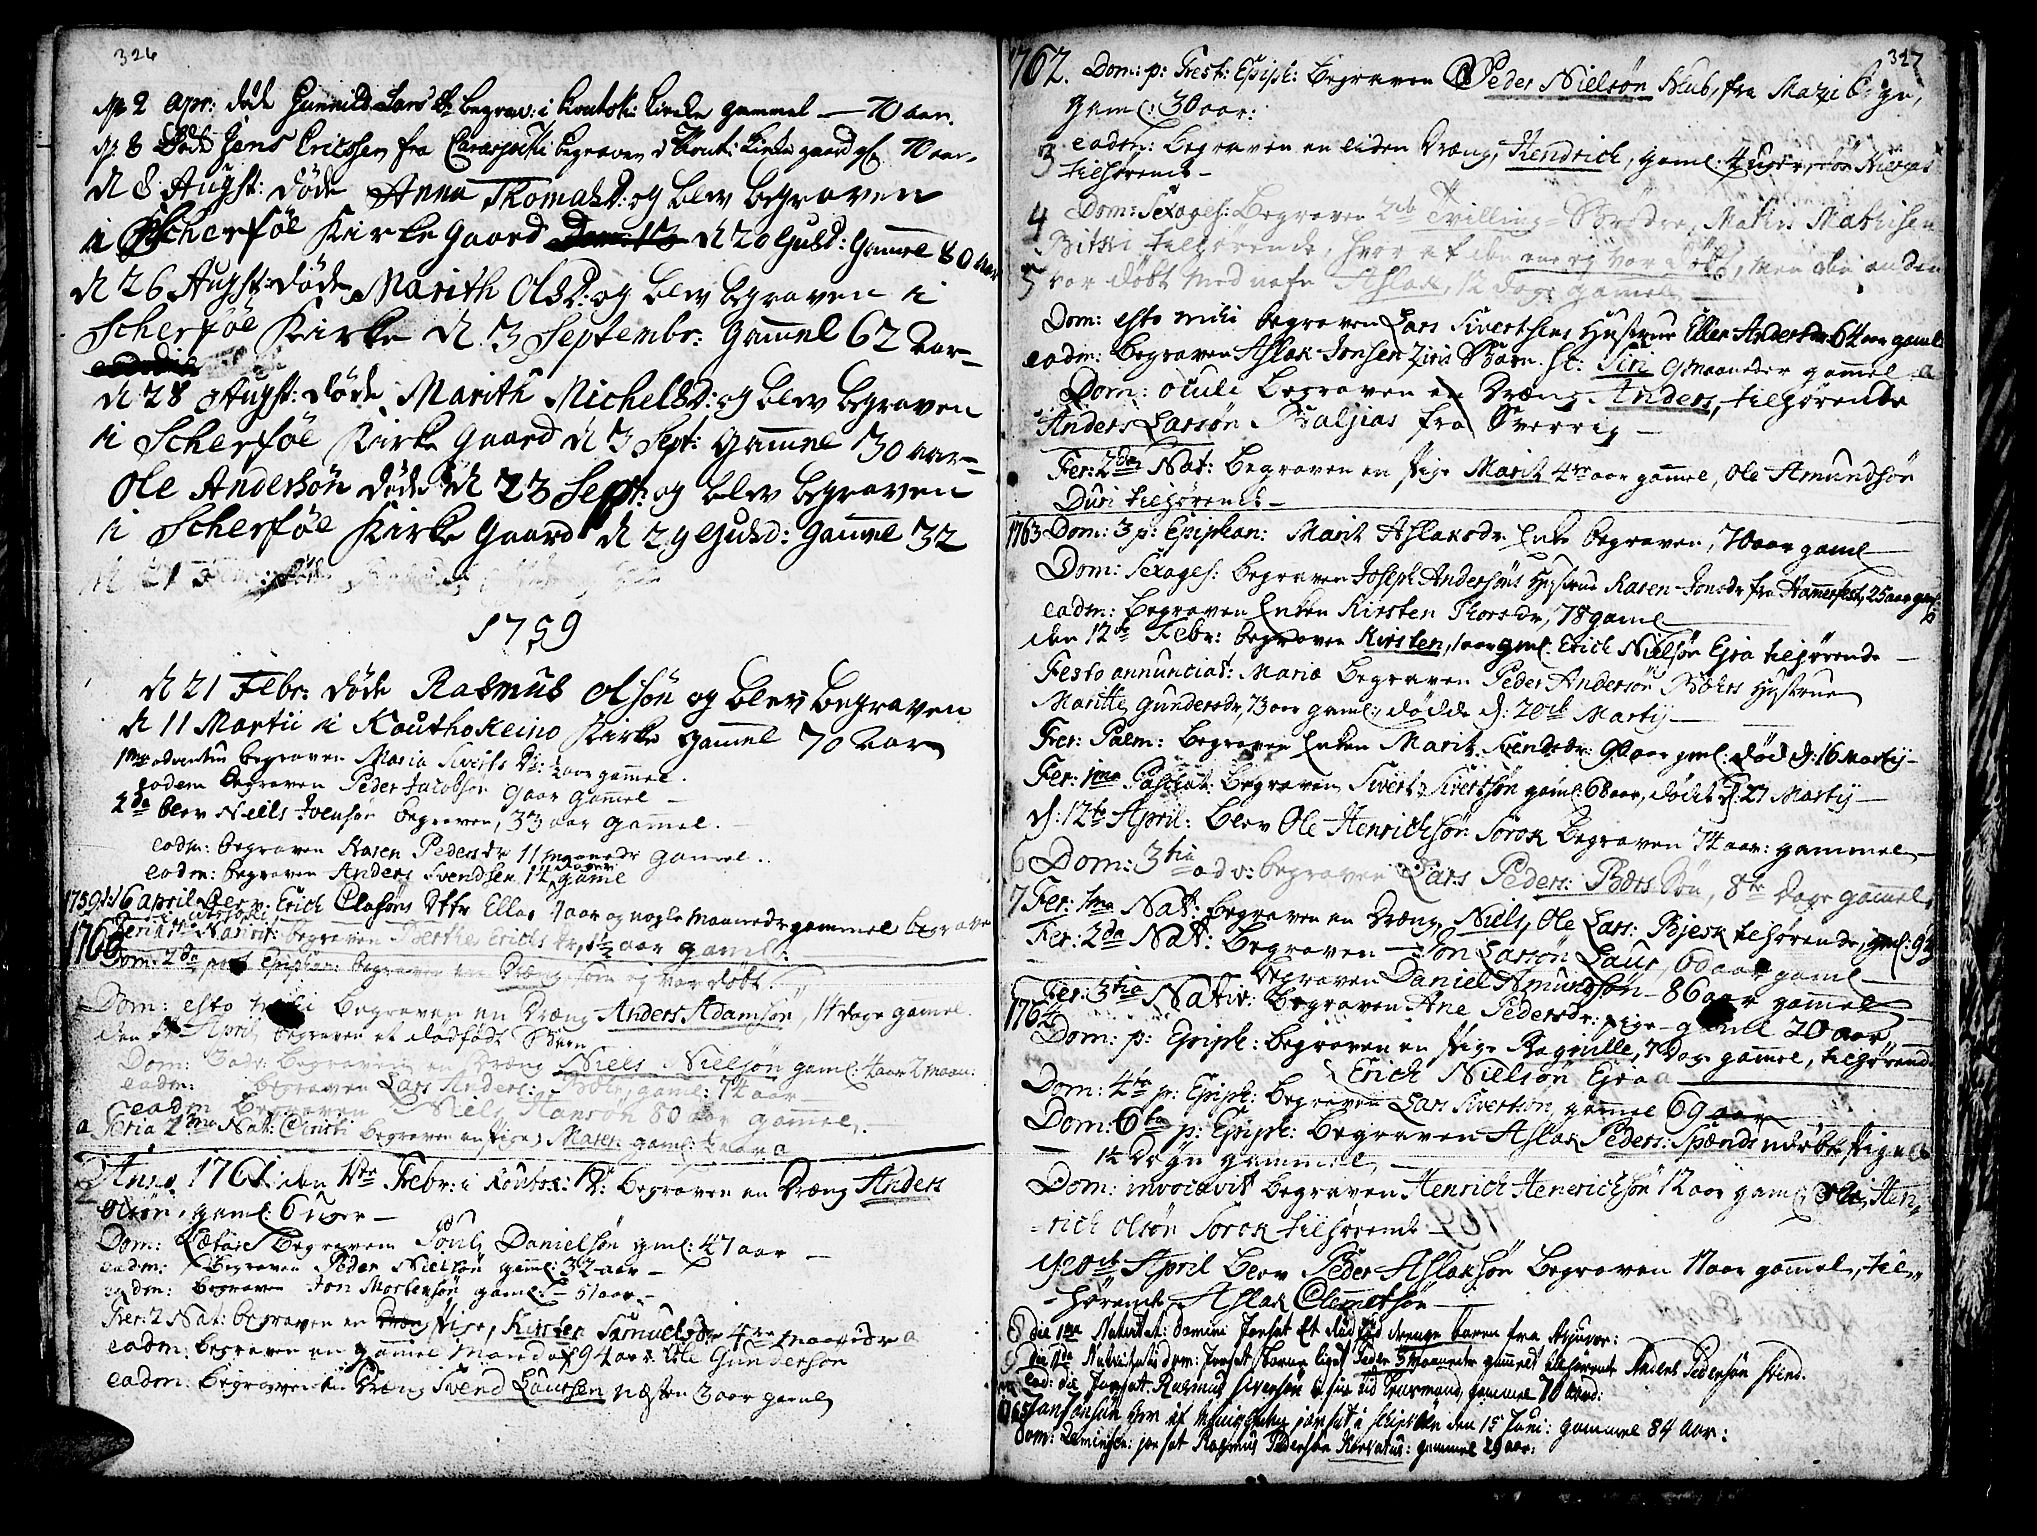 326
d. 2 Apr: døde Gunnild Lars D. begrav: i Koutok: Kirke gammel — 70 aar.
d. 8 døde Jens Ericksen fra begraven i Kout: Kirke gaard gl. 70 aar
d 8 Augst: døde Anna Thomæsd: og blev begraven
i Scherføe Kirke Gaard d 20 Ejusd: Gammel 80 Aar
d 26 Augst: døde Marith OlsD: og blev begraven i
Scherføe Kirke d. 3 Septembr: Gammel 62 Aar
d 28 Augst: døde Marith Michelsd: og blev begraven
i Scherføe Kirke Gaard d 3 Sept: Gammel 30 aar
Ole Andersøn døde d 23 Sept: og blev begraven
i Scherføe Kirke Gaard d 29 Ejusd: Gammel 32
d 21 Febr: døde
1759
d 21 Febr: døde Rasmus Olsøn og blev begraven
d 11 Martii i Kauthokeino Kirke Gammel 70 Aar
1ma adventus begraven Maria Siverts Dr: aar gammel.
eodem begraven Peder Jacobsøn 9 aar gammel —
2da blev Niels Ivensøn begraven, 33 aar gammel. —
eadm: begraven Karen Pedersdr 11 maaneder gammel.
eadm: begraven Anders Svendsen 14 dager gamel
1759 d: 16 april blev Erich Olafsøns Dttr Ellen 7 aar og nogle maaneder gammel begraven
Feria Nativit: begraven Berthe Erichs dr, 1½ aar gamel.
1760
Dom: 2da post Epiphan: begraven en Dreng som ej var døbt.
Dom: esto mihi begraven en Dreng Anders Adamsøn, 14 dage gamel.
den April, begraven et dødfødt Barn
Dom: 3 adv: begraven en Dreng Niels Nielsøn gaml: 4 aar 2 maan:
eadm: begraven Lars Anders: gaml: 74 aar —
eadm begraven Niels Hansøn 80 aar gammel. —
a Feria 2 Nat: Christi begraven en Pige, Maren gaml: 2 aar a
Anno 1761: den 1te Febr: i Koutok: K: begraven en Dreng Anders
Olsøn, gaml: 6 uger —
Dom: Lætare begraven Poul Danielsøn gml: 47 aar —
eadm: begraven Peder Nielsøn gaml: 32 aar —
eadm: begraven Jon Mortensøn gaml: — 51 aar —
Fer: 2 Nat: begraven en Pige, Kirsten Samuelsdr 4 maaneder a
eadm: begraven en gammel Mand af 94 aar Ole Gundersøn
eadm: begraven en Dreng Svend Laursen næsten 3 aar gamel
327
1762. Dom: p: Fest: Epiph: begraven Peder Nielsøn Kub, fra Mazi
gaml: 30 aar:
3 eadm: begraven en liden Dreng, Hendrich, gaml: 4 uger, søn
tilhørende —
4 Dom: Sexages: begraven 2de Tvilling-Brødre, Mathis Mathisen
Bitti tilhørende, hvor af den ene ej var døbt, men den anden
5 var døbt med nafn Aslak, 12 dage gamel —
Dom: esto mihi begraven Lars Sivertsens Hustrue Ellen Andersdr 64 aar gamel
eadm: begraven Aslak Jonsen Barn St: Siri 9 Maaneder gammel a
Dom: oculi begraven en Dreng Anders, tilhørende
Anders Larsøn Baljias fra Sverrig —
Fer: 2da Nat: begraven en Pige Marit 4re aar gammel, Ole Amundsøn
Duri tilhørende —
1763 Dom: 3 p: Epiphan: Marit Aslaksdr Enke begraven, 70 aar gaml —
Dom: Sexages: begraven Joseph Andersøns Hustrue Karen Jonsdr fra Hamerfest, 25 aar gml:
eadm: begraven Enken Kirsten Thorsdr, 78 gaml —
den 12te Febr: begraven Kirsten, 1 aar gml: Erich Nielsøn Ejra tilhørende —
Festo annunciat: Mariæ begraven Peder Andersøn Bæhrs Hustrue
Maritte Gundersdr, 73 aar gaml: dødde d: 20de Martij —
Fer: Palm: begraven Enken Marit Svendsdr: 90 aar gml: død d: 16 Martij —
Fer: 1ma Paschat: begraven Sivert Sivertsøn gaml: 68 aar, dødde d: 27 Martij —
d: 12te April: blev Ole Henrichsøn Sorok begraven 74 aar: gammel —
6 Dom: 3tia adv: begraven Lars Peders: Bærs Søn, 8te dage gammel,
7 Fer: 1ma Nat: begraven en Dreng, Niels, Ole Lars: Bjesk tilhørende, gml:
Fer: 2da Nat: begraven — Jon Larsøn Laur, 60 aar gaml —
begraven Daniel Amundsøn — 86 aar gammel
Fer: 3tia Nativ: begraven Ane Pedersdr: pige gaml 20 aar,
1764
Dom: p: Epiph: begraven en Pige Bagnille, 7 dage gammel, tilhørend
Erich Nielsøn Ejra a —
Dom: 4ta p: Epiph: begraven Lars Sivertsøn, gammel 69 aar
Dom: 6ta p: Epiph: begraven Aslak Peders: Spænds udøbte Pige
14 Døgn gammel, —
Dom: invocavit begraven Henrich Henrichsøn 12 aar gaml Hen-
rich Olsøn Sorok tilhørende —
d 20de April blev Peder Aslaksøn begraven 17 aar gammel, til-
hørende Aslak Clemetsøn —
8 die 1ma Nativitat: Domini Jorsat Et død fød drenge baren fra
die Nativitatis Dom: Jorsat liget Peder 5 Maaneder gammel tilhørende Anders Pedersøn Svend.
ead: die Jorsat Rasmus Iversøn i sin tid Leusmand, gammel 70 aard:
1765 jorsat i den 15 Juni: gammel 84 Aar:
Dom: jorsat Rasmus Pedersøn Korvatus: gammel 29 aar: